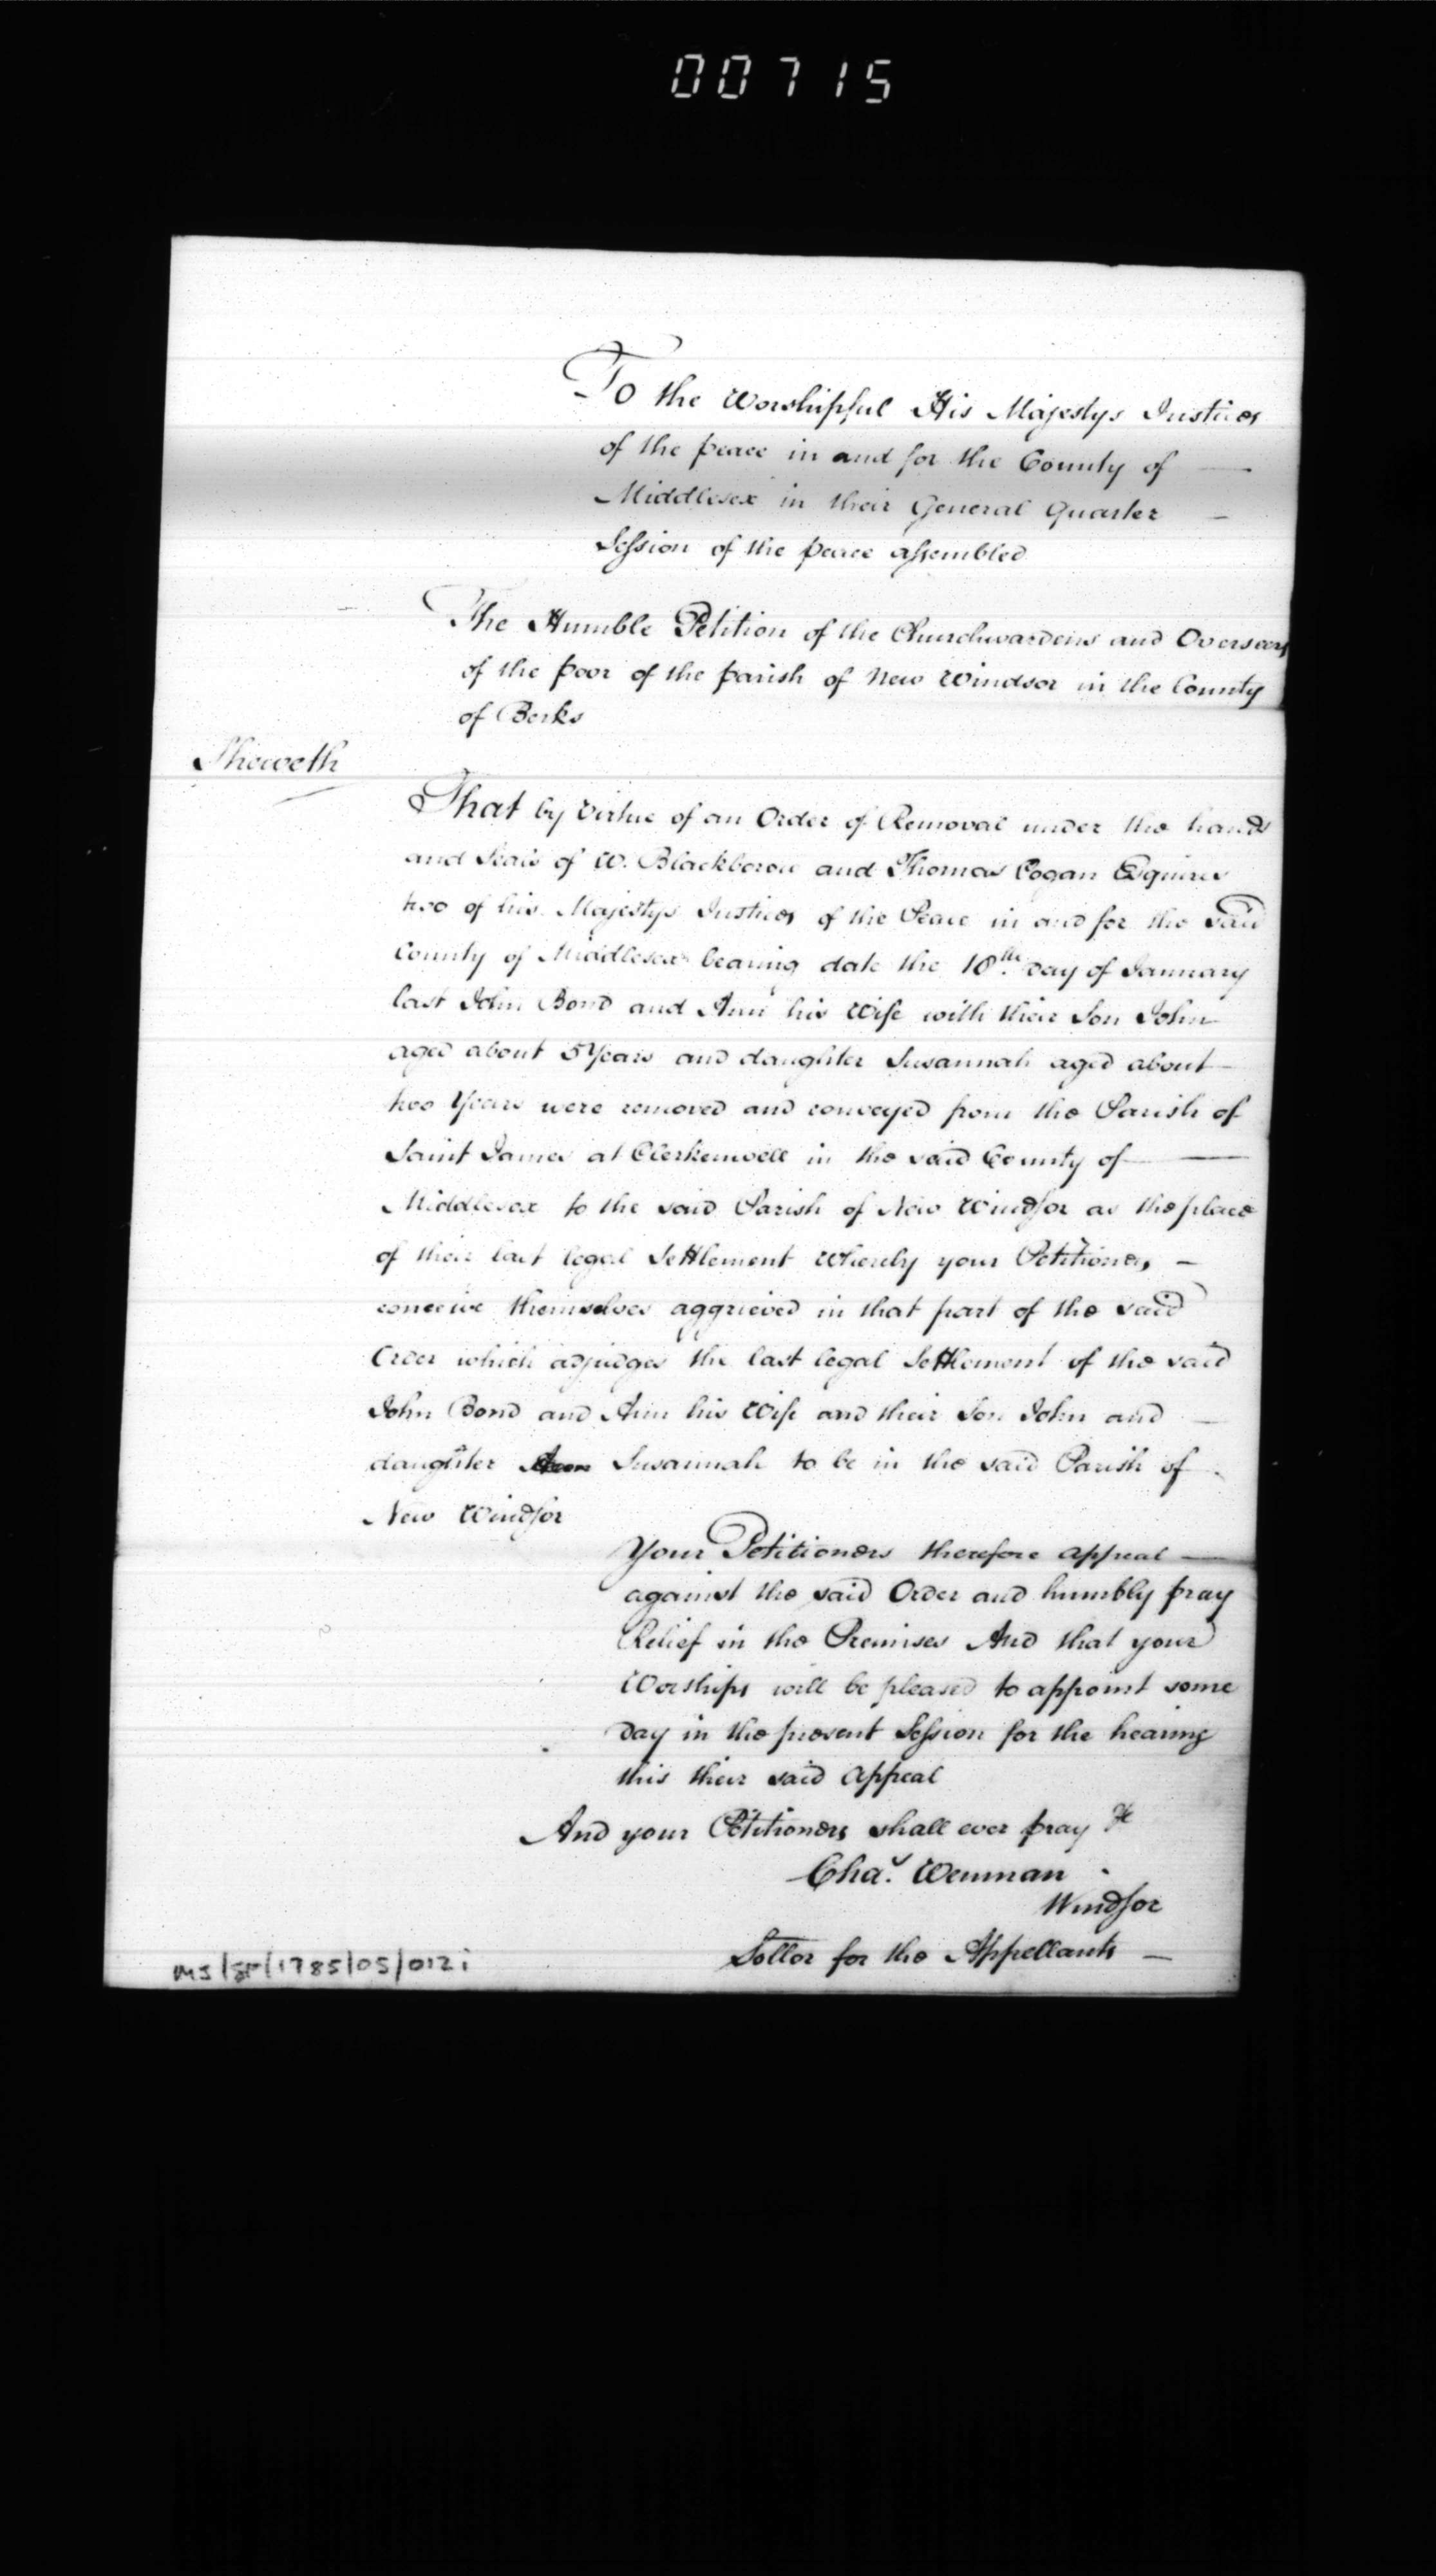 00715
To the Worshipful His Majestys Justices
of the peace in and for the County of
Middlesex in their General Quarter
Session of the peace assembled
The Humble Petition of the Churchwardens and Overseers
of the poor of the parish of New Windsor in the County
of Berks
Sheweth
That by Virtue of an Order of Removal under the hands
and Seals of W. Blackborow and Thomas Cogan Esquires
two of his Majestys Justices of the Peace in and for the said
County of Middlesex bearing date the 18th. Day of January
last John Bond and Ann his Wife with their Son John
aged about 5 Years and daughter Susannah aged about
two Years were removed and conveyed from the Parish of
Saint James at Clerkenwell in the said County of
Middlesex to the said Parish of New Windsor as the place
of their last legal Settlement Whereby your Petitioners
conceive themselves aggrieved in that part of the said
Order which adjudges the last legal Settlement of the said
John Bond and Ann his Wife and their Son John and
daughter Susannah to be in the said Parish of
New Windsor
Your Petitioners therefore appeal
against the said Order and humbly pray
Relief in the Premises And that your
Worships will be pleased to appoint some
Day in the present Session for the hearing
this their said Appeal
And your Petitioners shall ever pray &c
Chas. Wenman
Windsor
Sollor for the Appellants
MJ/SP/1785/05/012i